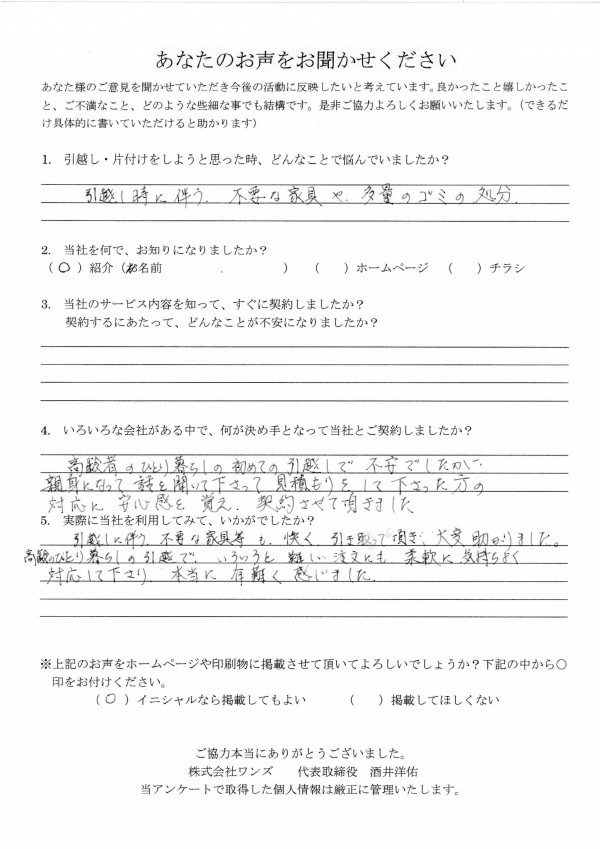 あなたのお声をお聞かせください
あなた様のご意見を聞かせていただき今後の活動に反映したいと考えています。良かったこと嬉しかったこ
と、ご不満なこと、どのような些細な事でも結構です。是非ご協力よろしくお願いいたします。（できるだ
け具体的に書いていただけると助かります）
1. 引越し・片付けをしようと思った時、どんなことで悩んでいましたか？
引越し時に伴う、不要な家具や、多量のゴミの処分.
2. 当社を何で、お知りになりましたか？
（○）紹介（お名前　　　　　　　　）（　）ホームページ　（　）チラシ
3. 当社のサービス内容を知って、すぐに契約しましたか？
契約するにあたって、どんなことが不安になりましたか？
4. いろいろな会社がある中で、何が決め手となって当社とご契約しましたか？
高齢者のひとり暮らしの初めての引越しで不安でしたが、
親身になって話を聞いて下さって見積もりをして下さった方の
対応に安心感を覚え、契約させて頂きました
5. 実際に当社を利用してみて、いかがでしたか？
引越しに伴う、不要な家具等も、快く、引き取って頂き、大変助かりました。
高齢のひとり暮らしの引越で、いろいろと難しい注文にも、柔軟に気持ちよく
対応して下さり、本当に有難く感じました.
※上記のお声をホームページや印刷物に掲載させて頂いてよろしいでしょうか？下記の中から○
印をお付けください。
（○）イニシャルなら掲載してもよい　　（　）掲載してほしくない
ご協力本当にありがとうございました。
株式会社ワンズ　　代表取締役　酒井洋佑
当アンケートで取得した個人情報は厳正に管理いたします。